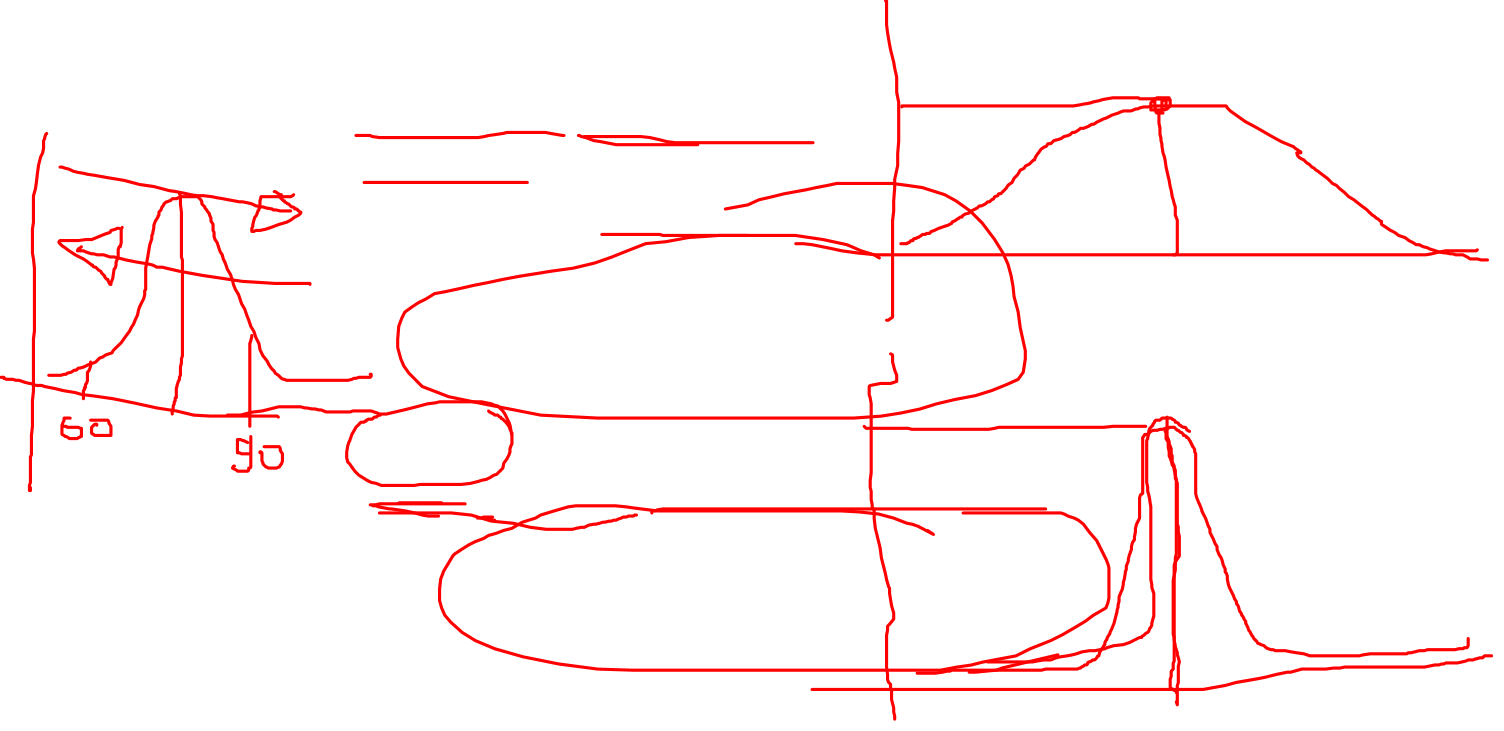 60
90